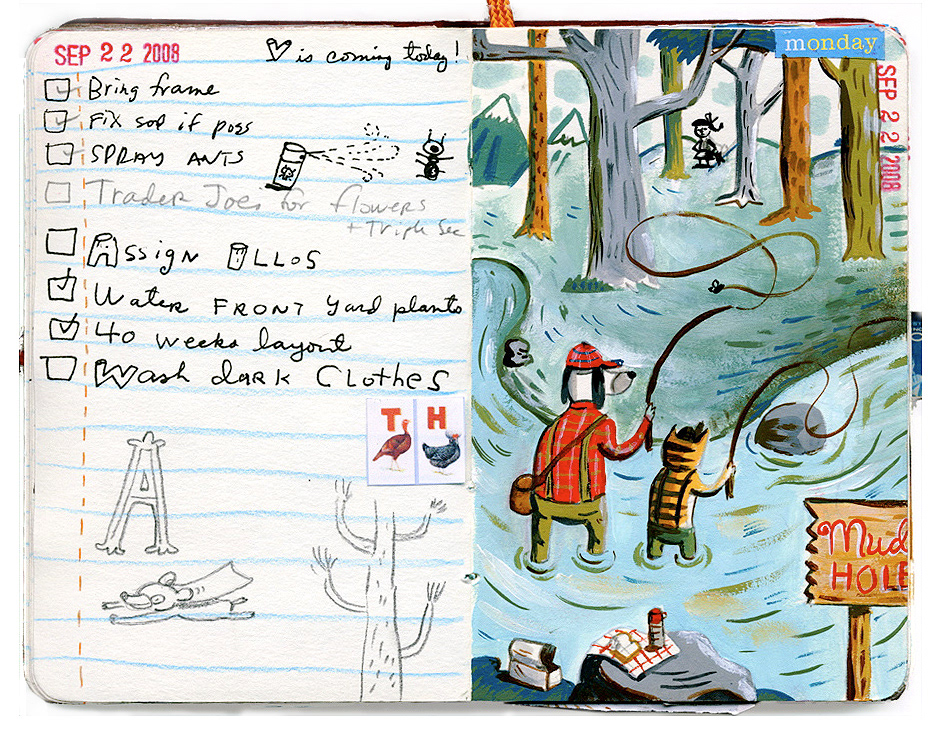 SEP 22 2008
♡ is coming today!
Bring frame
Fix sod if poss
SPRAY ANTS
Trader Joes for flowers
+ Triple Sec
Assign OLLOS
Water FRONT yard plants
40 weeks layout
Wash dark Clothes
T H
A
monday
SEP 22 2008
Mud
HOLE